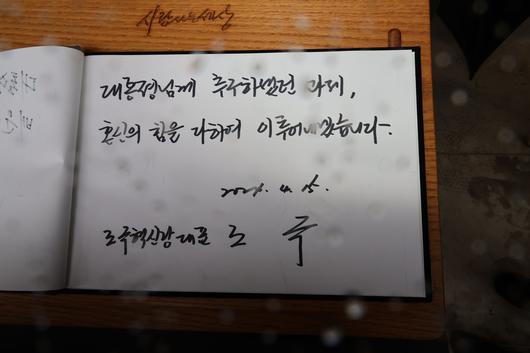 사람사는세상
대통령님께서 추구하셨던 과제,
혼신의 힘을 다하여 이루어내겠습니다.
2024. 4. 15.
조국혁신당 대표 조 국